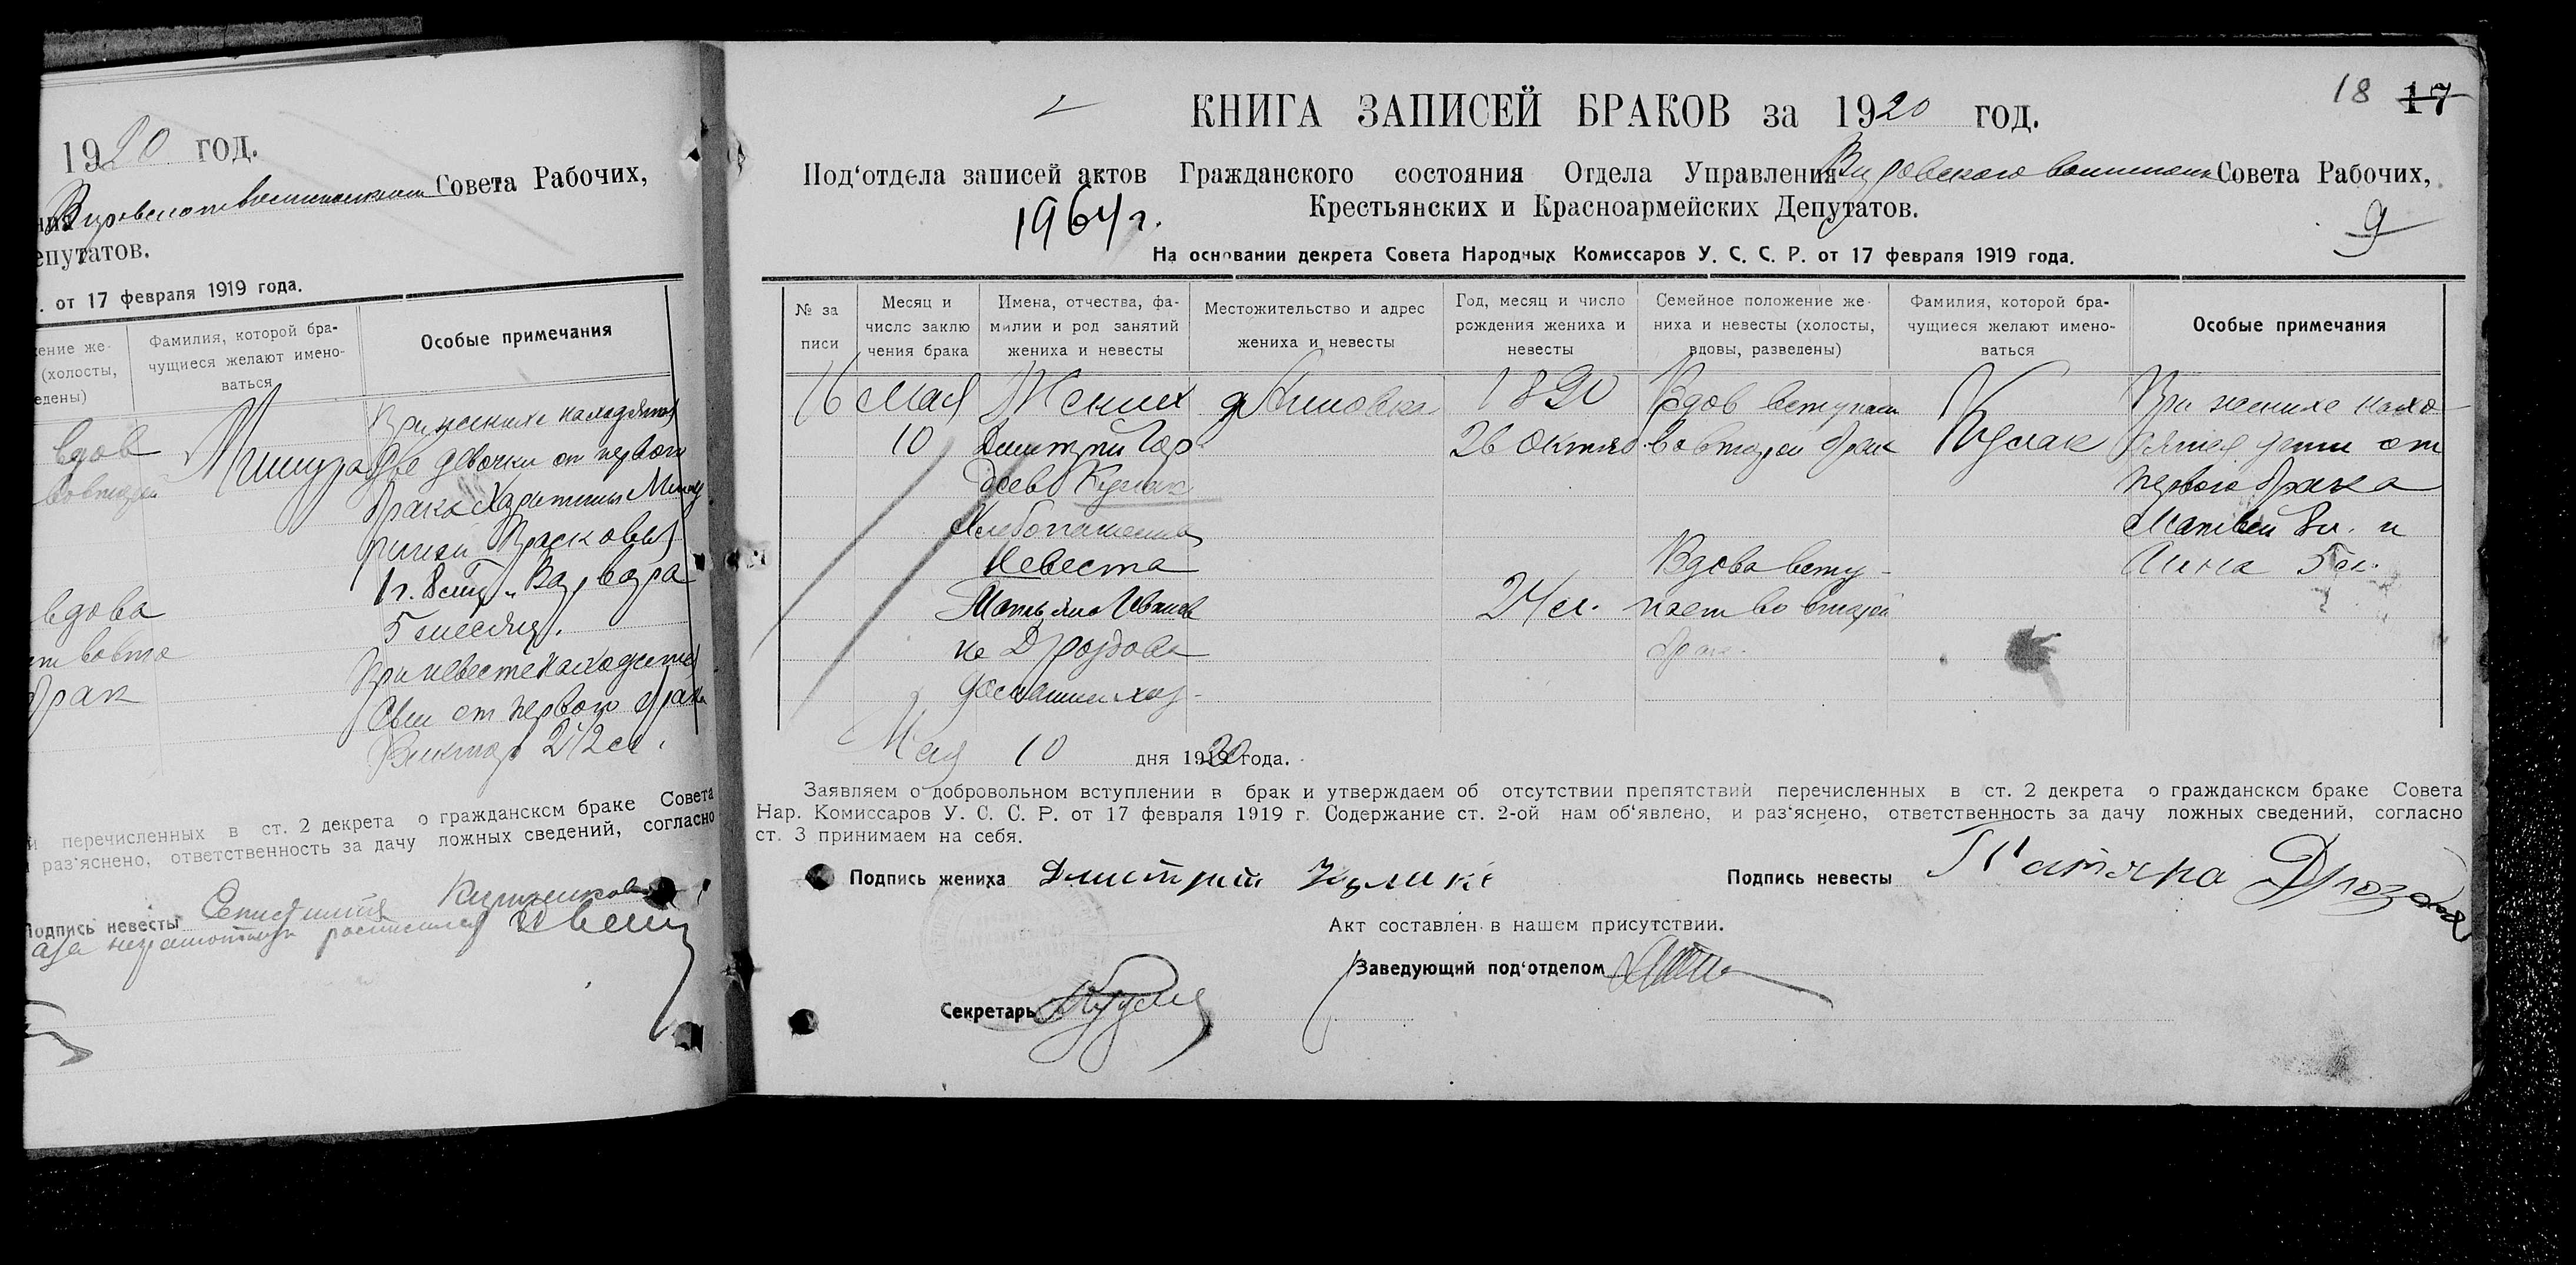 1920 год.
Совета Рабочих,
епутатов.
. от 17 февраля 1919 года.
жение же-
(холосты,
едены)
Фамилия, которой бра-
чущиеся желают имено-
ваться
Особые примечания
вдов
две девочки от первого
брака
5 месяц.
вдова
брак
При невесте находится
сын от первого брака
Виктор 2 1/2 л.
й перечисленных в ст. 2 декрета о гражданском браке Совета
раз'яснено, ответственность за дачу ложных сведений, согласно
Подпись невесты
неграмотная расписался
18 17
КНИГА ЗАПИСЕЙ БРАКОВ за 1920 год.
Под'отдела записей актов Гражданского состояния Отдела Управления Совета Рабочих,
Крестьянских и Красноармейских Депутатов.
1964 г.
9
На основании декрета Совета Народных Комиссаров У. С. С. Р. от 17 февраля 1919 года.
№ за
писи
Месяц и
число заклю
чения брака
Имена, отчества, фа-
милии и род занятий
жениха и невесты
Местожительство и адрес
жениха и невесты
Год, месяц и число
рождения жениха и
невесты
Семейное положение же-
ниха и невесты (холосты,
вдовы, разведены)
Фамилия, которой бра-
чущиеся желают имено-
ваться
Особые примечания
16 Мая Жених 1890 Вдов вступает При женихе нахо-
10 Дмитрий Гор- 26 Октяб. во второй брак Кулак дятся дети от
деев Кулак первого брака
Хлебопашец Матвей 8 л. и
Невеста Вдова всту- Анна 5 л.
Татьяна Иванов- 24 л. пает во второй
на Дроздова брак.
домашн. хоз.
Мая 10 дня 1920 года.
Заявляем о добровольном вступлении в брак и утверждаем об отсутствии препятствий перечисленных в ст. 2 декрета о гражданском браке Совета
Нар. Комиссаров У. С. С. Р. от 17 февраля 1919 г. Содержание ст. 2-ой нам об'явлено, и раз'яснено, ответственность за дачу ложных сведений, согласно
ст. 3 принимаем на себя.
Подпись жениха Дмитрий Кулакъ
Подпись невесты Татяна Дрозд
Акт составлен в нашем присутствии.
Заведующий под'отделом
Секретарь